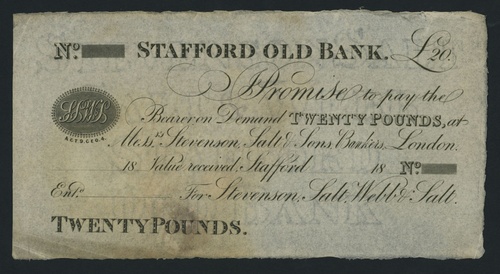 No. STAFFORD OLD BANK. £20.
I Promise to pay the
Bearer on Demand TWENTY POUNDS, at
Mess.rs Stevenson, Salt & Sons, Bankers, London.
18 Value received, Stafford 18 No.
Ent.d For Stevenson, Salt, Webb & Salt.
TWENTY POUNDS.